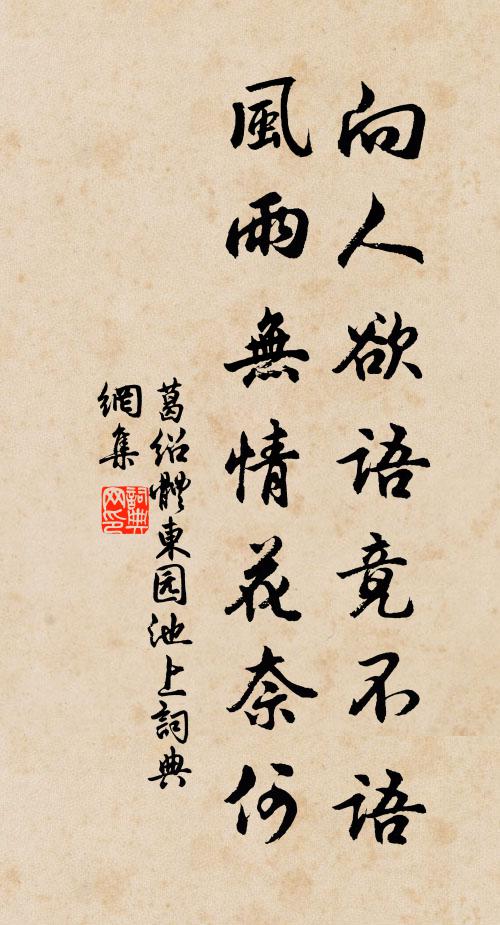 向人欲語竟不語
風雨無情花奈何
葛绍體東园池上詞典
網集
詞典
网印